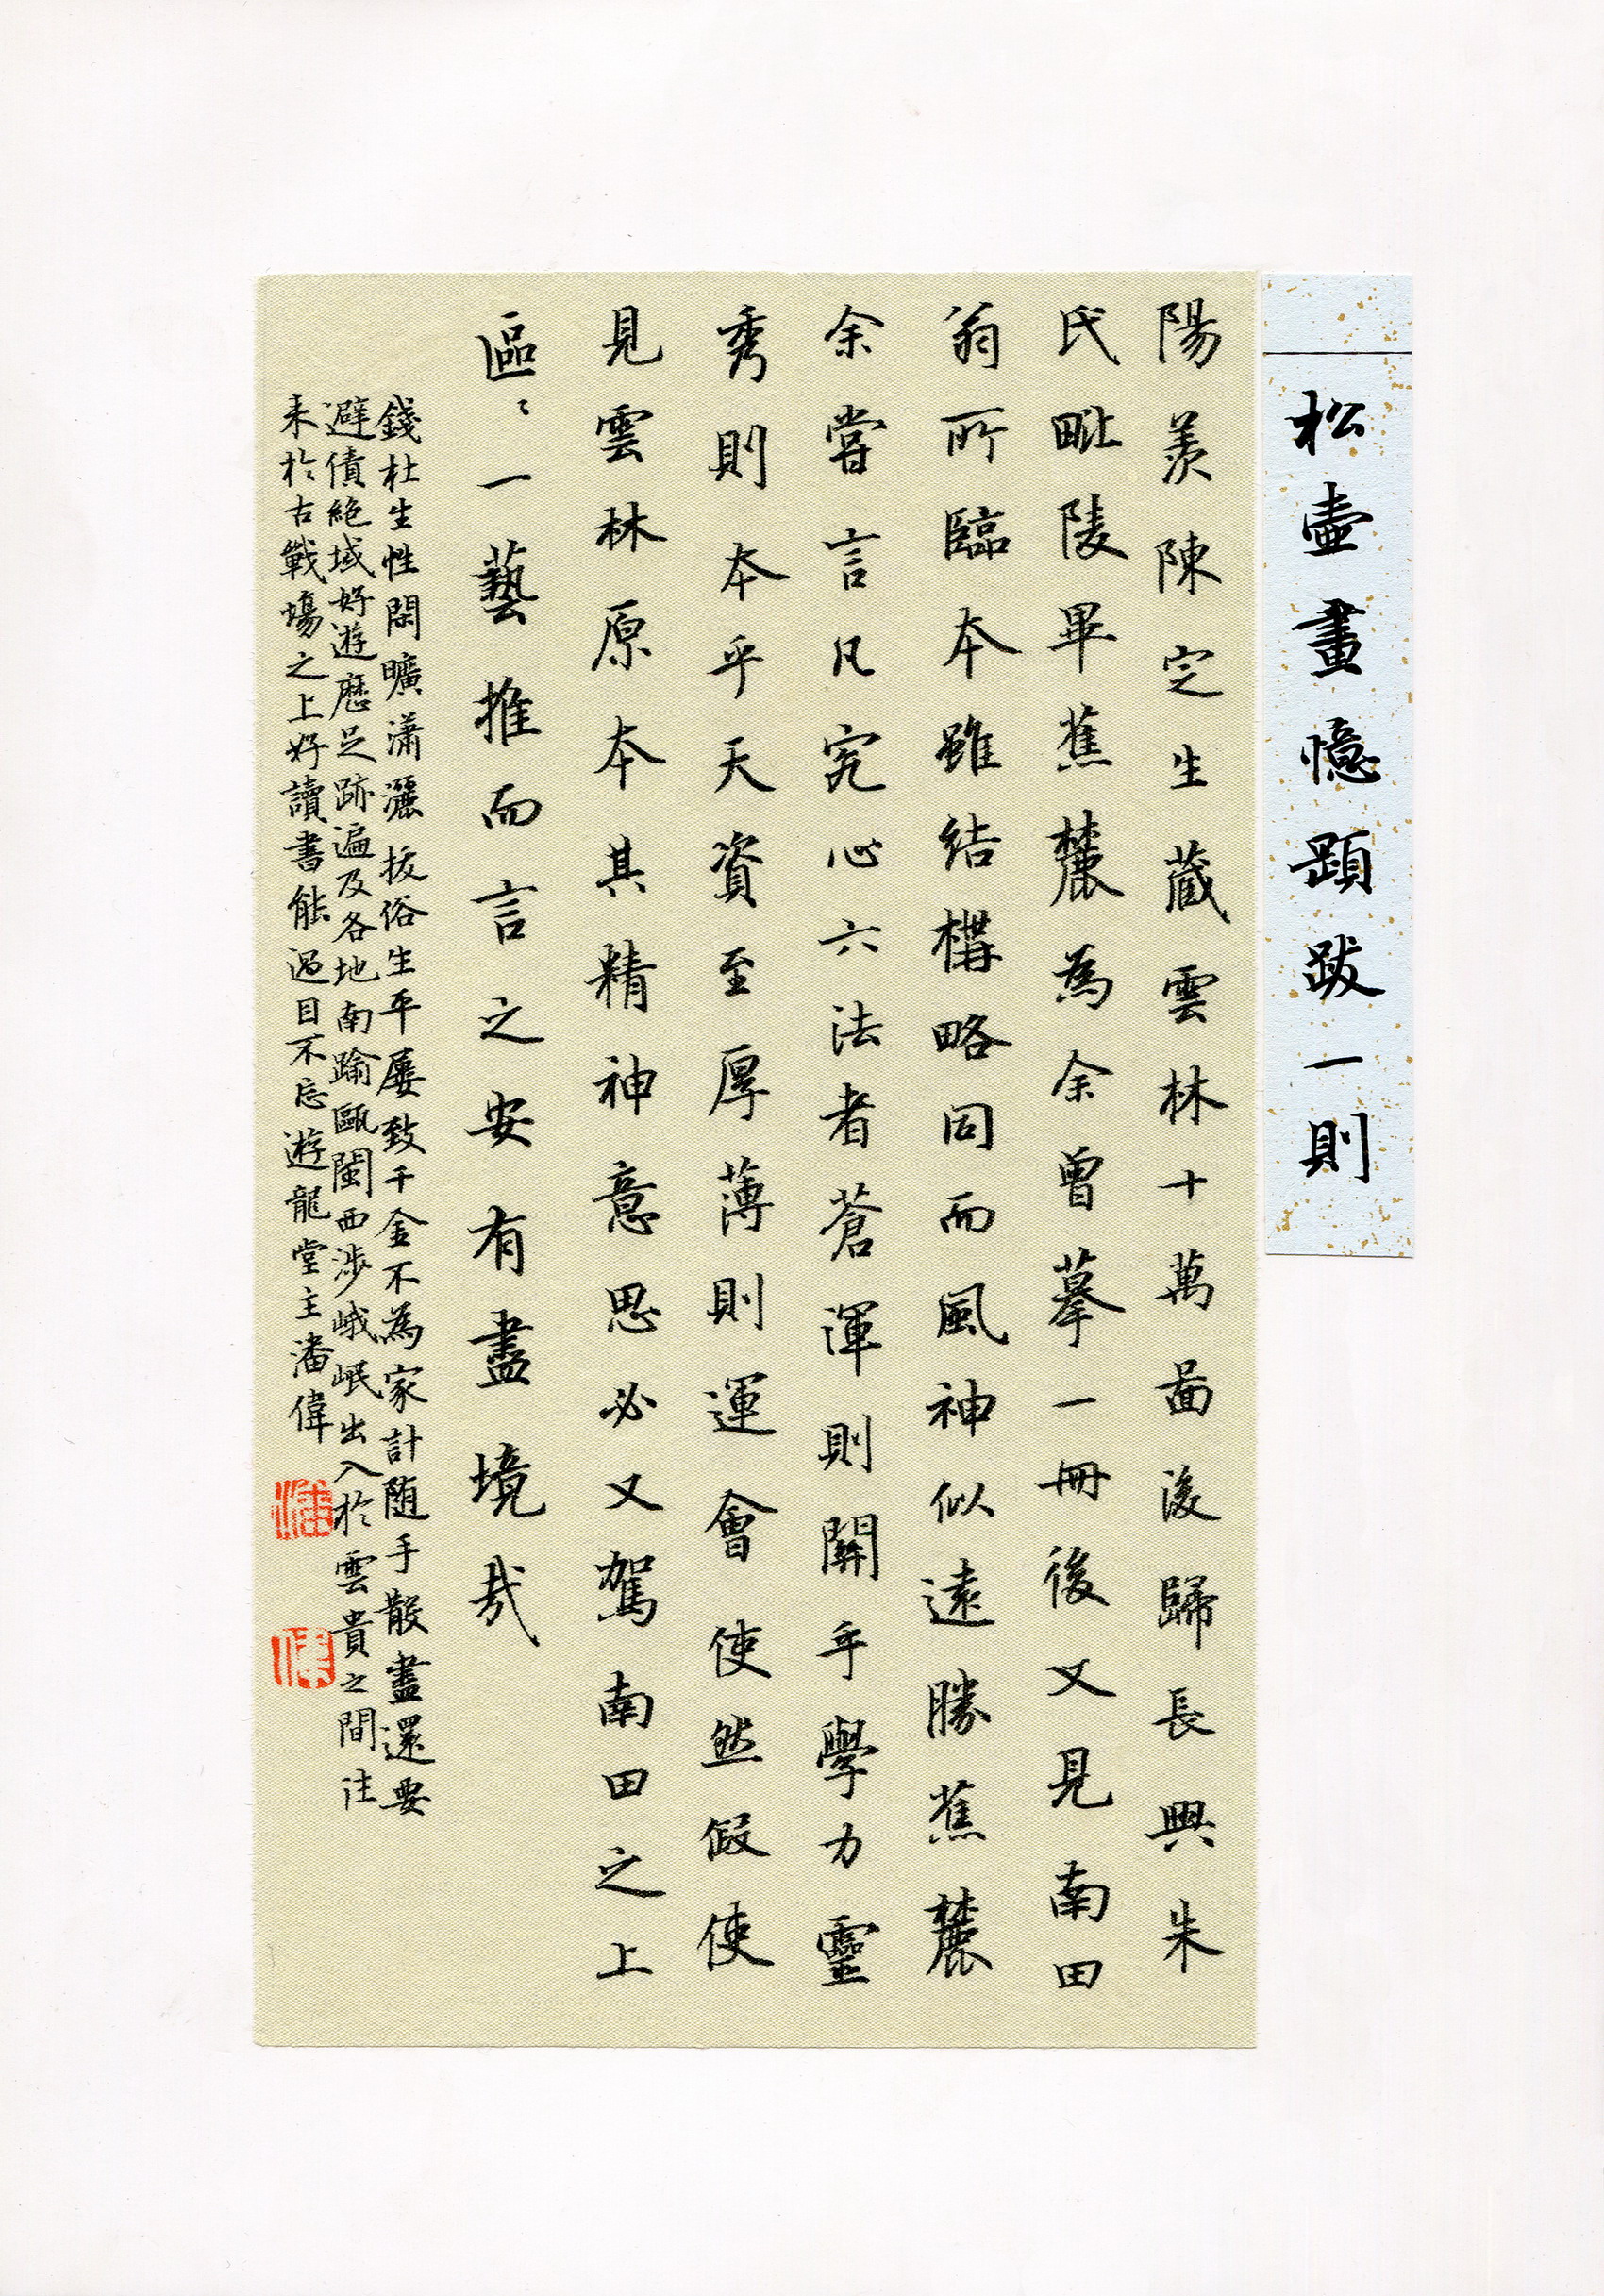 松壺畫憶題跋一則
陽羨陳定生藏雲林十萬圖後歸長興朱
氏毗陵畢蕉麓為余曾摹一冊後又見南田
翁所臨本雖結構略同而風神似遠勝蕉麓
余嘗言凡究心六法者蒼渾則關乎學力靈
秀則本乎天資至厚薄則運會使然假使
見雲林原本其精神意思必又駕南田之上
區〻一藝推而言之安有盡境哉
錢杜生性閑曠瀟灑拔俗生平屢致千金不為家計随手散盡還要
避債絕域好遊歷足跡遍及各地南踰甌閩西涉峨岷出入於雲貴之間往
来於古戰場之上好讀書能過目不忘遊龍堂主潘偉
潘
偉